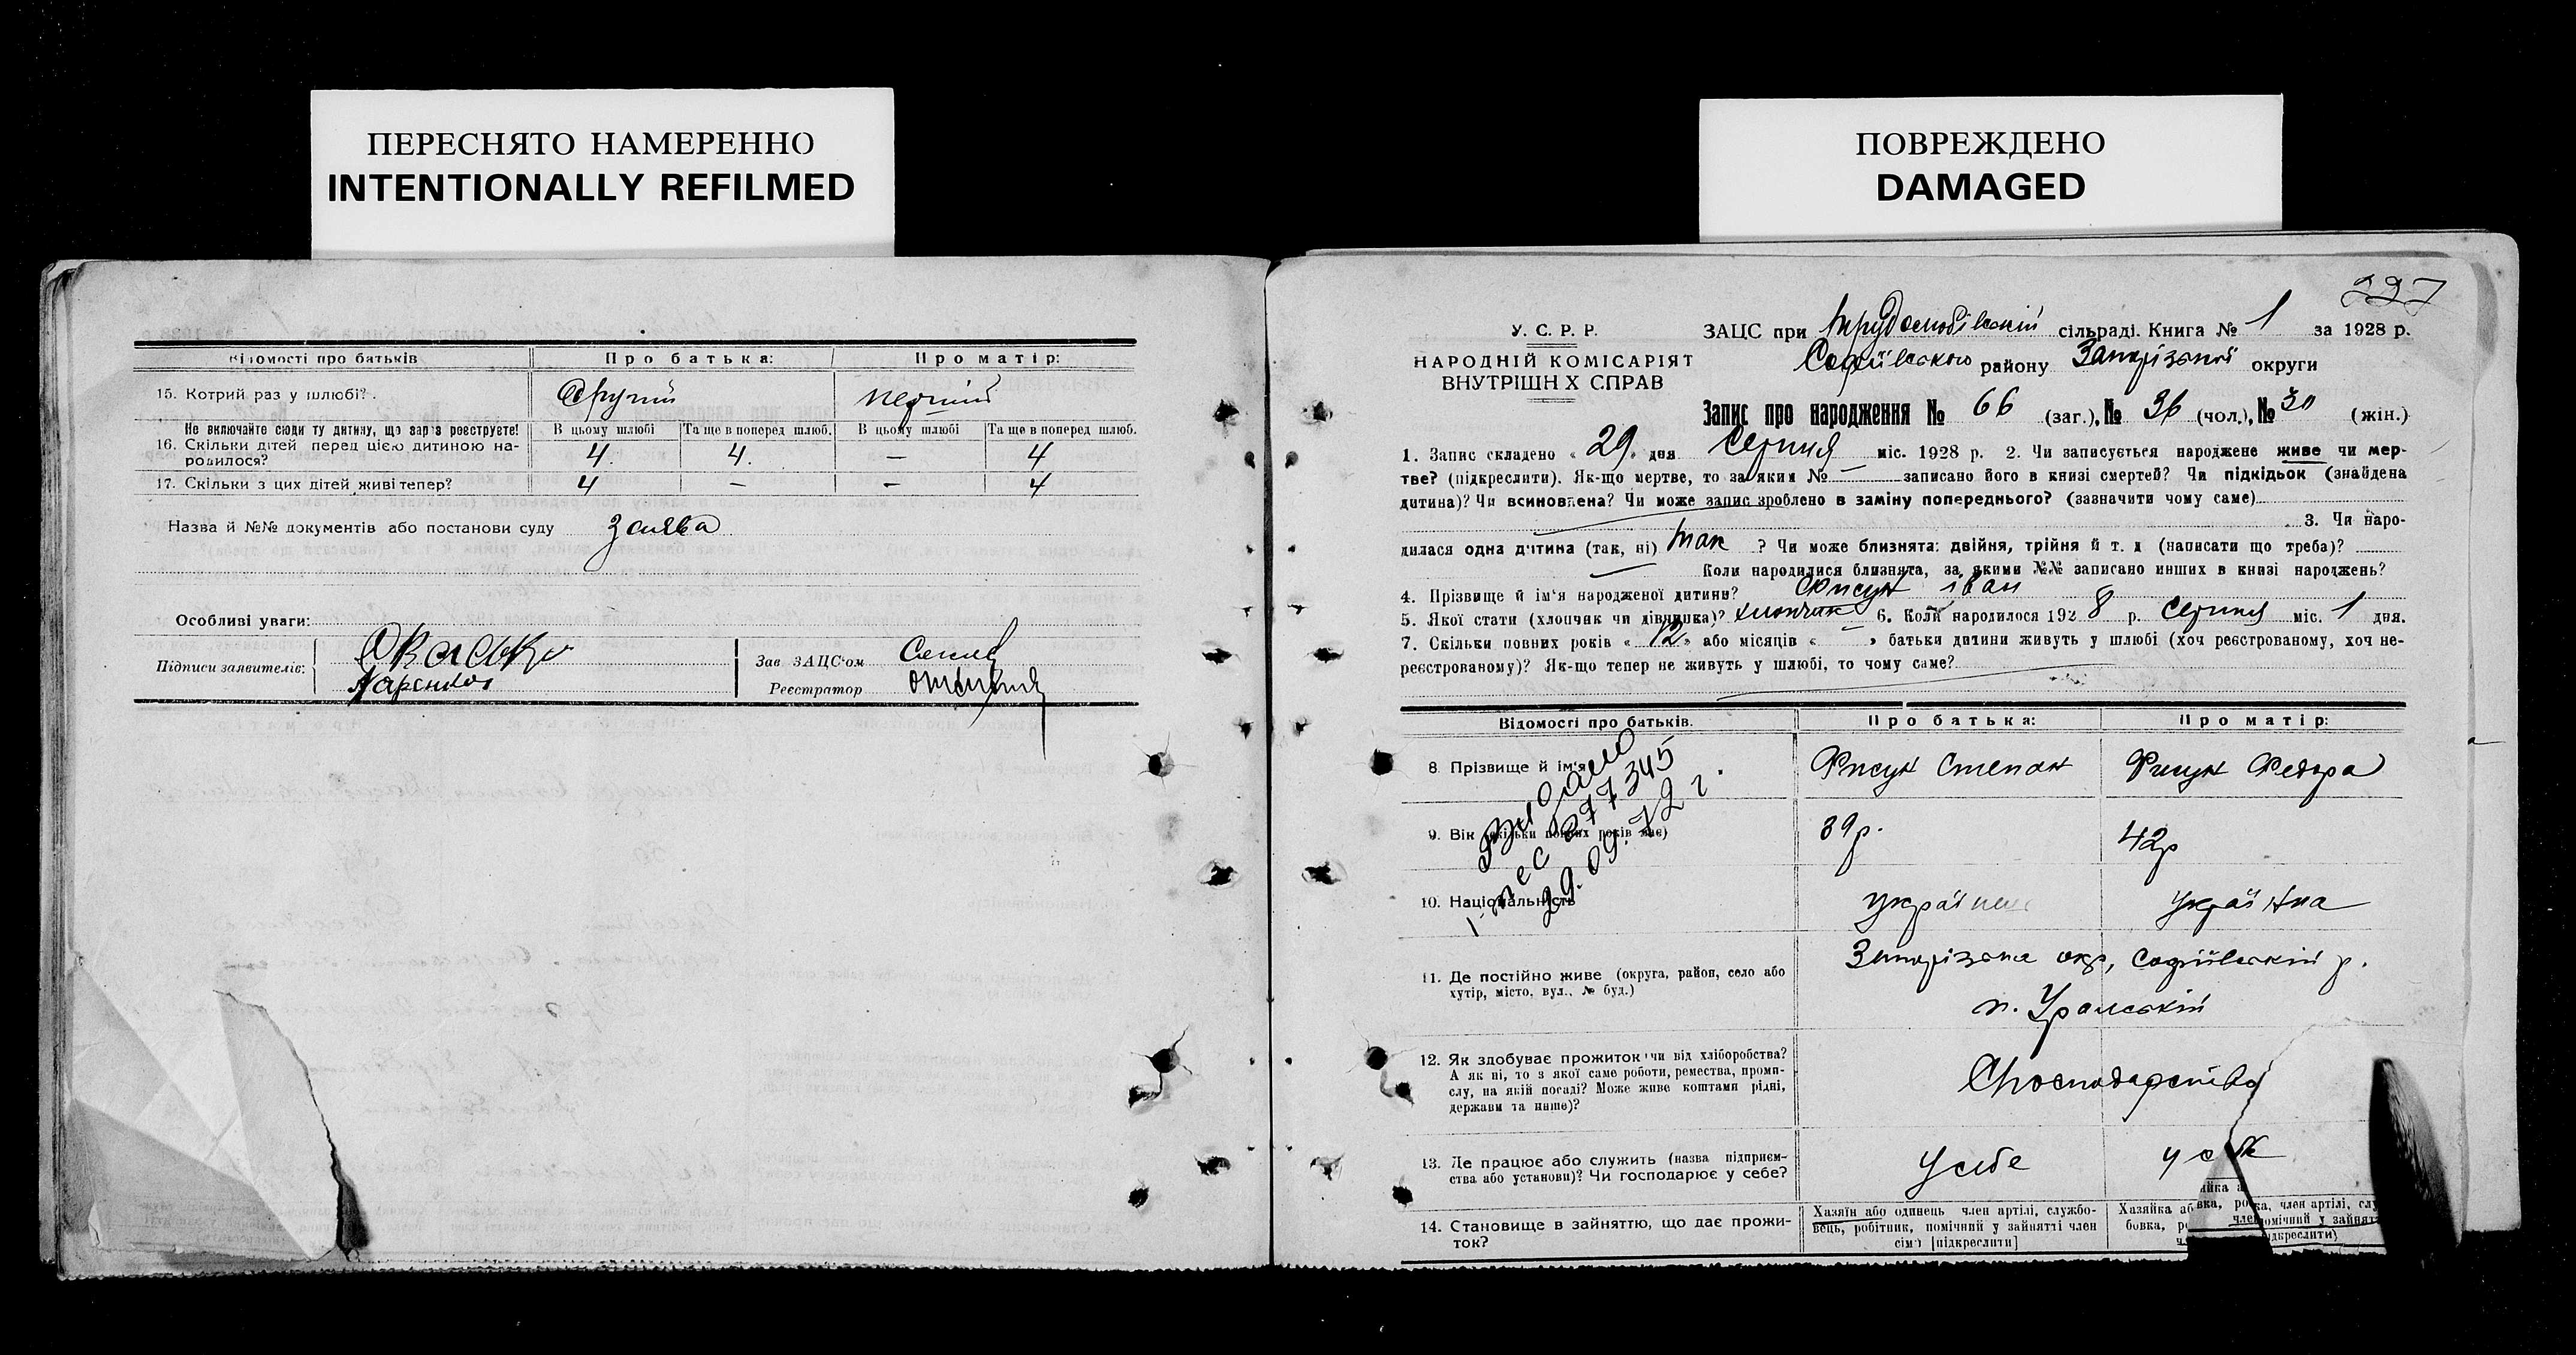 ПЕРЕСНЯТО НАМЕРЕННО
INTENTIONALLY REFILMED
ПОВРЕЖДЕНО
DAMAGED
Відомості про батьків
Про батька:
Про матір:
15. Котрий раз у шлюбі?
другий
перший
Не включайте сюди ту дитину, що зараз реєструєте!
В цьому шлюбі
Та ще в поперед шлюб.
В цьому шлюбі
Та ще в поперед шлюб.
16. Скільки дітей перед цією дитиною на-
родилося?
4.
4.
—
4
17. Скільки з цих дітей живі тепер?
4
—
—
4
Назва й №№ документів або постанови суду
заява
Особливі уваги:
Підписи заявителів:
Зав. ЗАЦС'ом
Реєстратор
227
У. С. Р. Р.
НАРОДНІЙ КОМІСАРІЯТ
ВНУТРІШНІХ СПРАВ
ЗАЦС при сільраді. Книга № 1 за 1928 р.
Софіївського району Запорізької округи
Запис про народження № 66 (заг.), № 36 (чол.), № 30 (жін.)
1. Запис складено « 29 » дня Серпня міс. 1928 р. 2. Чи записується народжене живе чи мер-
тве? (підкреслити). Як-що мертве, то за яким № — записано його в книзі смертей? Чи підкідьок (знайдена
дитина)? Чи всиновлена? Чи може запис зроблено в заміну попереднього? (зазначити чому саме)
3. Чи наро-
дилася одна дитина (так, ні) так ? Чи може близнята: двійня, трійня й т. д (написати що треба)?
Коли народилися близнята, за якими №№ записано инших в книзі народжень?
4. Прізвище й ім'я народженої дитини? Фисун іван
5. Якої стати (хлопчик чи дівчинка)? хлопчик 6. Коли народилося 1928 р. Серпня міс. 1 дня.
7. Скільки повних років « 12 » або місяців « — » батьки дитини живуть у шлюбі (хоч реєстрованому, хоч не-
реєстрованому)? Як-що тепер не живуть у шлюбі, то чому саме?
Відомості про батьків.
Про батька:
Про матір:
8. Прізвище й ім'я
Фисун Степан
Фисун Федора
9. Вік (скільки повних років має)
39р.
42р
10. Національність
українець
українка
11. Де постійно живе (округа, район, село або
хутір, місто, вул., № буд.)
Запорізька окр, Софіївський р.
п. Уральський
12. Як здобуває прожиток чи від хліборобства?
А як ні, то з якої саме роботи, ремества, проми-
слу, на якій посаді? Може живе коштами рідні,
держави та инше)?
Сгосподарства
13. Де працює або служить (назва підприєм-
ства або установи)? Чи господарює у себе?
У себе
у себе
14. Становище в зайняттю, що дає прожи-
ток?
Хазяїн або одинець член артілі, службо-
вець, робітник, помічний у зайнятті член
сім'ї [підкреслити]